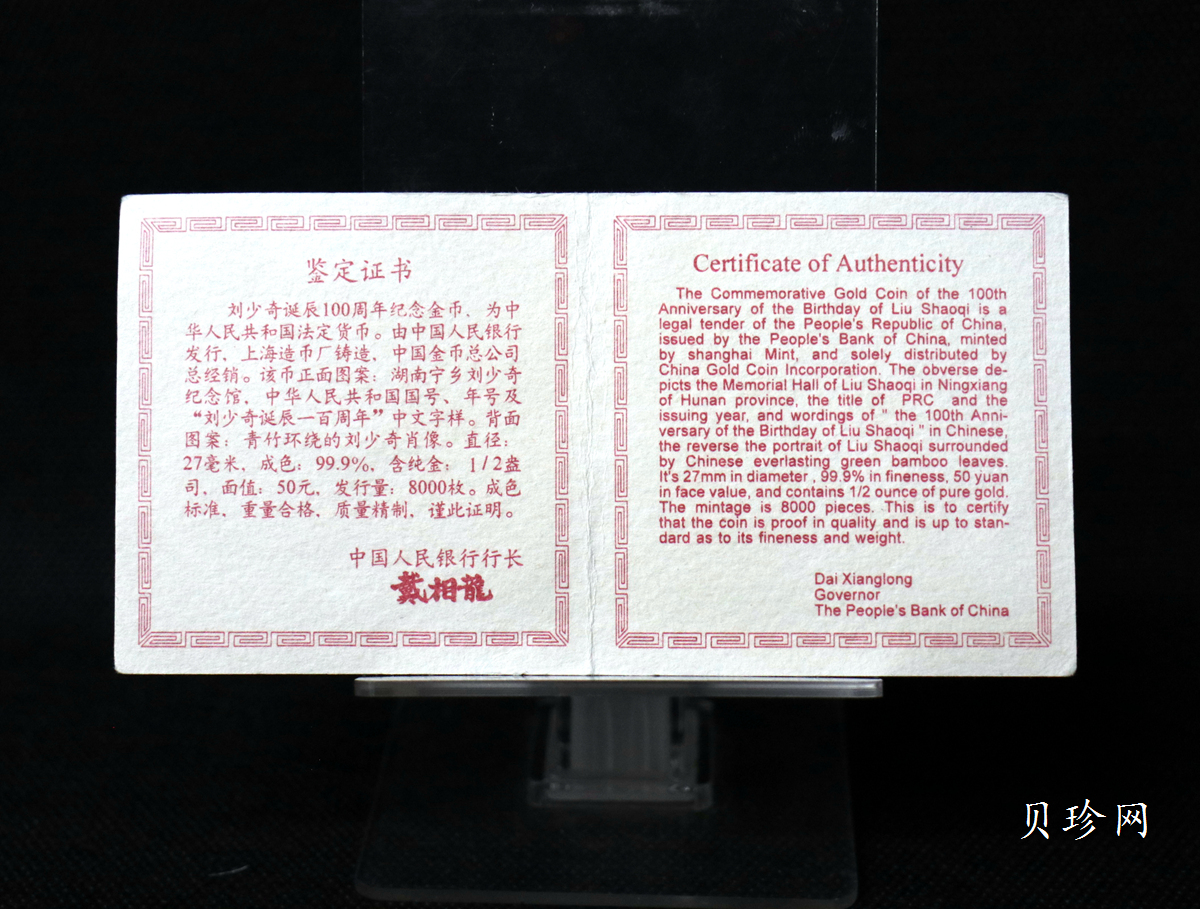 鉴定证书
刘少奇诞辰100周年纪念金币，为中
华人民共和国法定货币。由中国人民银行
发行，上海造币厂铸造，中国金币总公司
总经销。该币正面图案：湖南宁乡刘少奇
纪念馆，中华人民共和国国号、年号及
“刘少奇诞辰一百周年”中文字样。背面
图案：青竹环绕的刘少奇肖像。直径：
27毫米，成色：99.9%，含纯金：1/2盎
司，面值：50元，发行量：8000枚。成色
标准，重量合格，质量精制，谨此证明。
中国人民银行行长
戴相龍
Certificate of Authenticity
The Commemorative Gold Coin of the 100th
Anniversary of the Birthday of Liu Shaoqi is a
legal tender of the People's Republic of China,
issued by the People's Bank of China, minted
by shanghai Mint, and solely distributed by
China Gold Coin Incorporation. The obverse de-
picts the Memorial Hall of Liu Shaoqi in Ningxiang
of Hunan province, the title of PRC and the
issuing year, and wordings of " the 100th Anni-
versary of the Birthday of Liu Shaoqi " in Chinese,
the reverse the portrait of Liu Shaoqi surrounded
by Chinese everlasting green bamboo leaves.
It's 27mm in diameter , 99.9% in fineness, 50 yuan
in face value, and contains 1/2 ounce of pure gold.
The mintage is 8000 pieces. This is to certify
that the coin is proof in quality and is up to stan-
dard as to its fineness and weight.
Dai Xianglong
Governor
The People's Bank of China
贝珍网